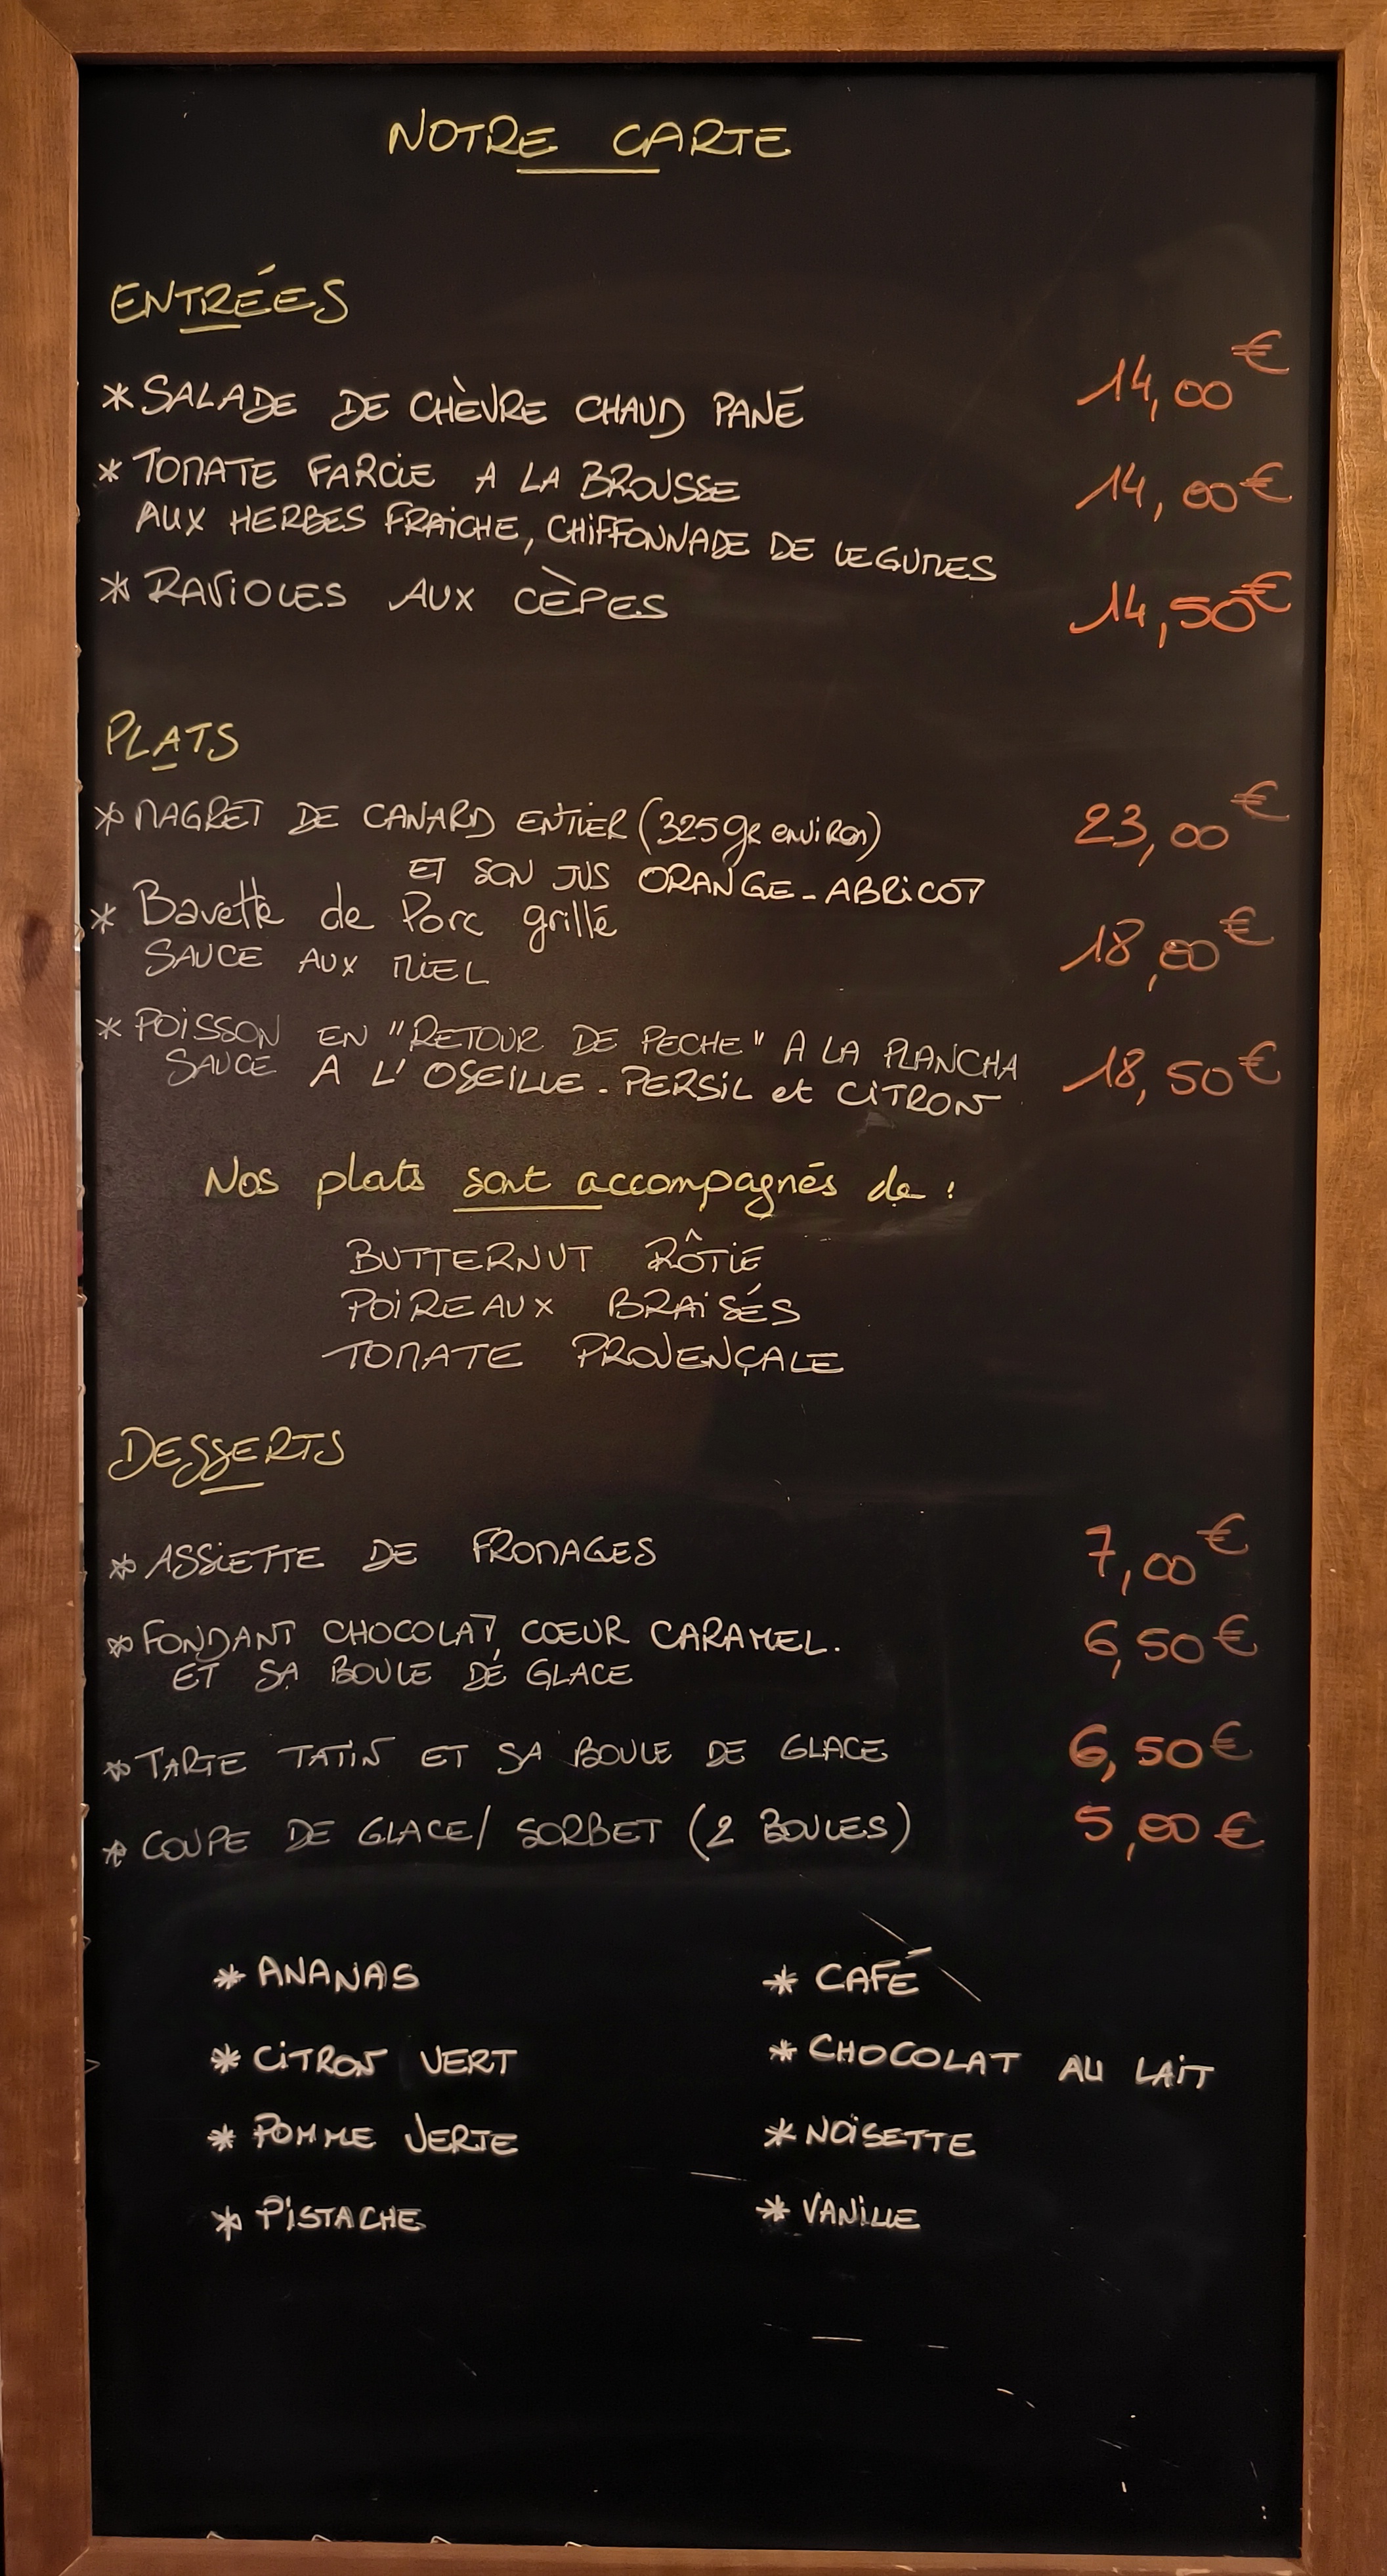 NOTRE CARTE
ENTRÉES
* SALADE DE CHÈVRE CHAUD PANÉ 14,00€
* TOMATE FARCIE A LA BROUSSE 14,00€
AUX HERBES FRAICHE, CHIFFONNADE DE LEGUMES
* RAVIOLES AUX CÈPES 14,50€
PLATS
* MAGRET DE CANARD ENTIER (325 gr environ) 23,00€
ET SON JUS ORANGE-ABRICOT
* Bavette de Porc grillé 18,00€
SAUCE AUX MIEL
* POISSON EN "RETOUR DE PECHE" A LA PLANCHA 18,50€
SAUCE A L'OSEILLE - PERSIL et CITRON
Nos plats sont accompagnés de :
BUTTERNUT RÔTIE
POIREAUX BRAISÉS
TOMATE PROVENÇALE
DESSERTS
* ASSIETTE DE FROMAGES 7,00€
* FONDANT CHOCOLAT, COEUR CARAMEL. 6,50€
ET SA BOULE DE GLACE
* TARTE TATIN ET SA BOULE DE GLACE 6,50€
* COUPE DE GLACE/ SORBET (2 BOULES) 5,00€
* ANANAS * CAFÉ
* CITRON VERT * CHOCOLAT AU LAIT
* POMME VERTE * NOISETTE
* PISTACHE * VANILLE